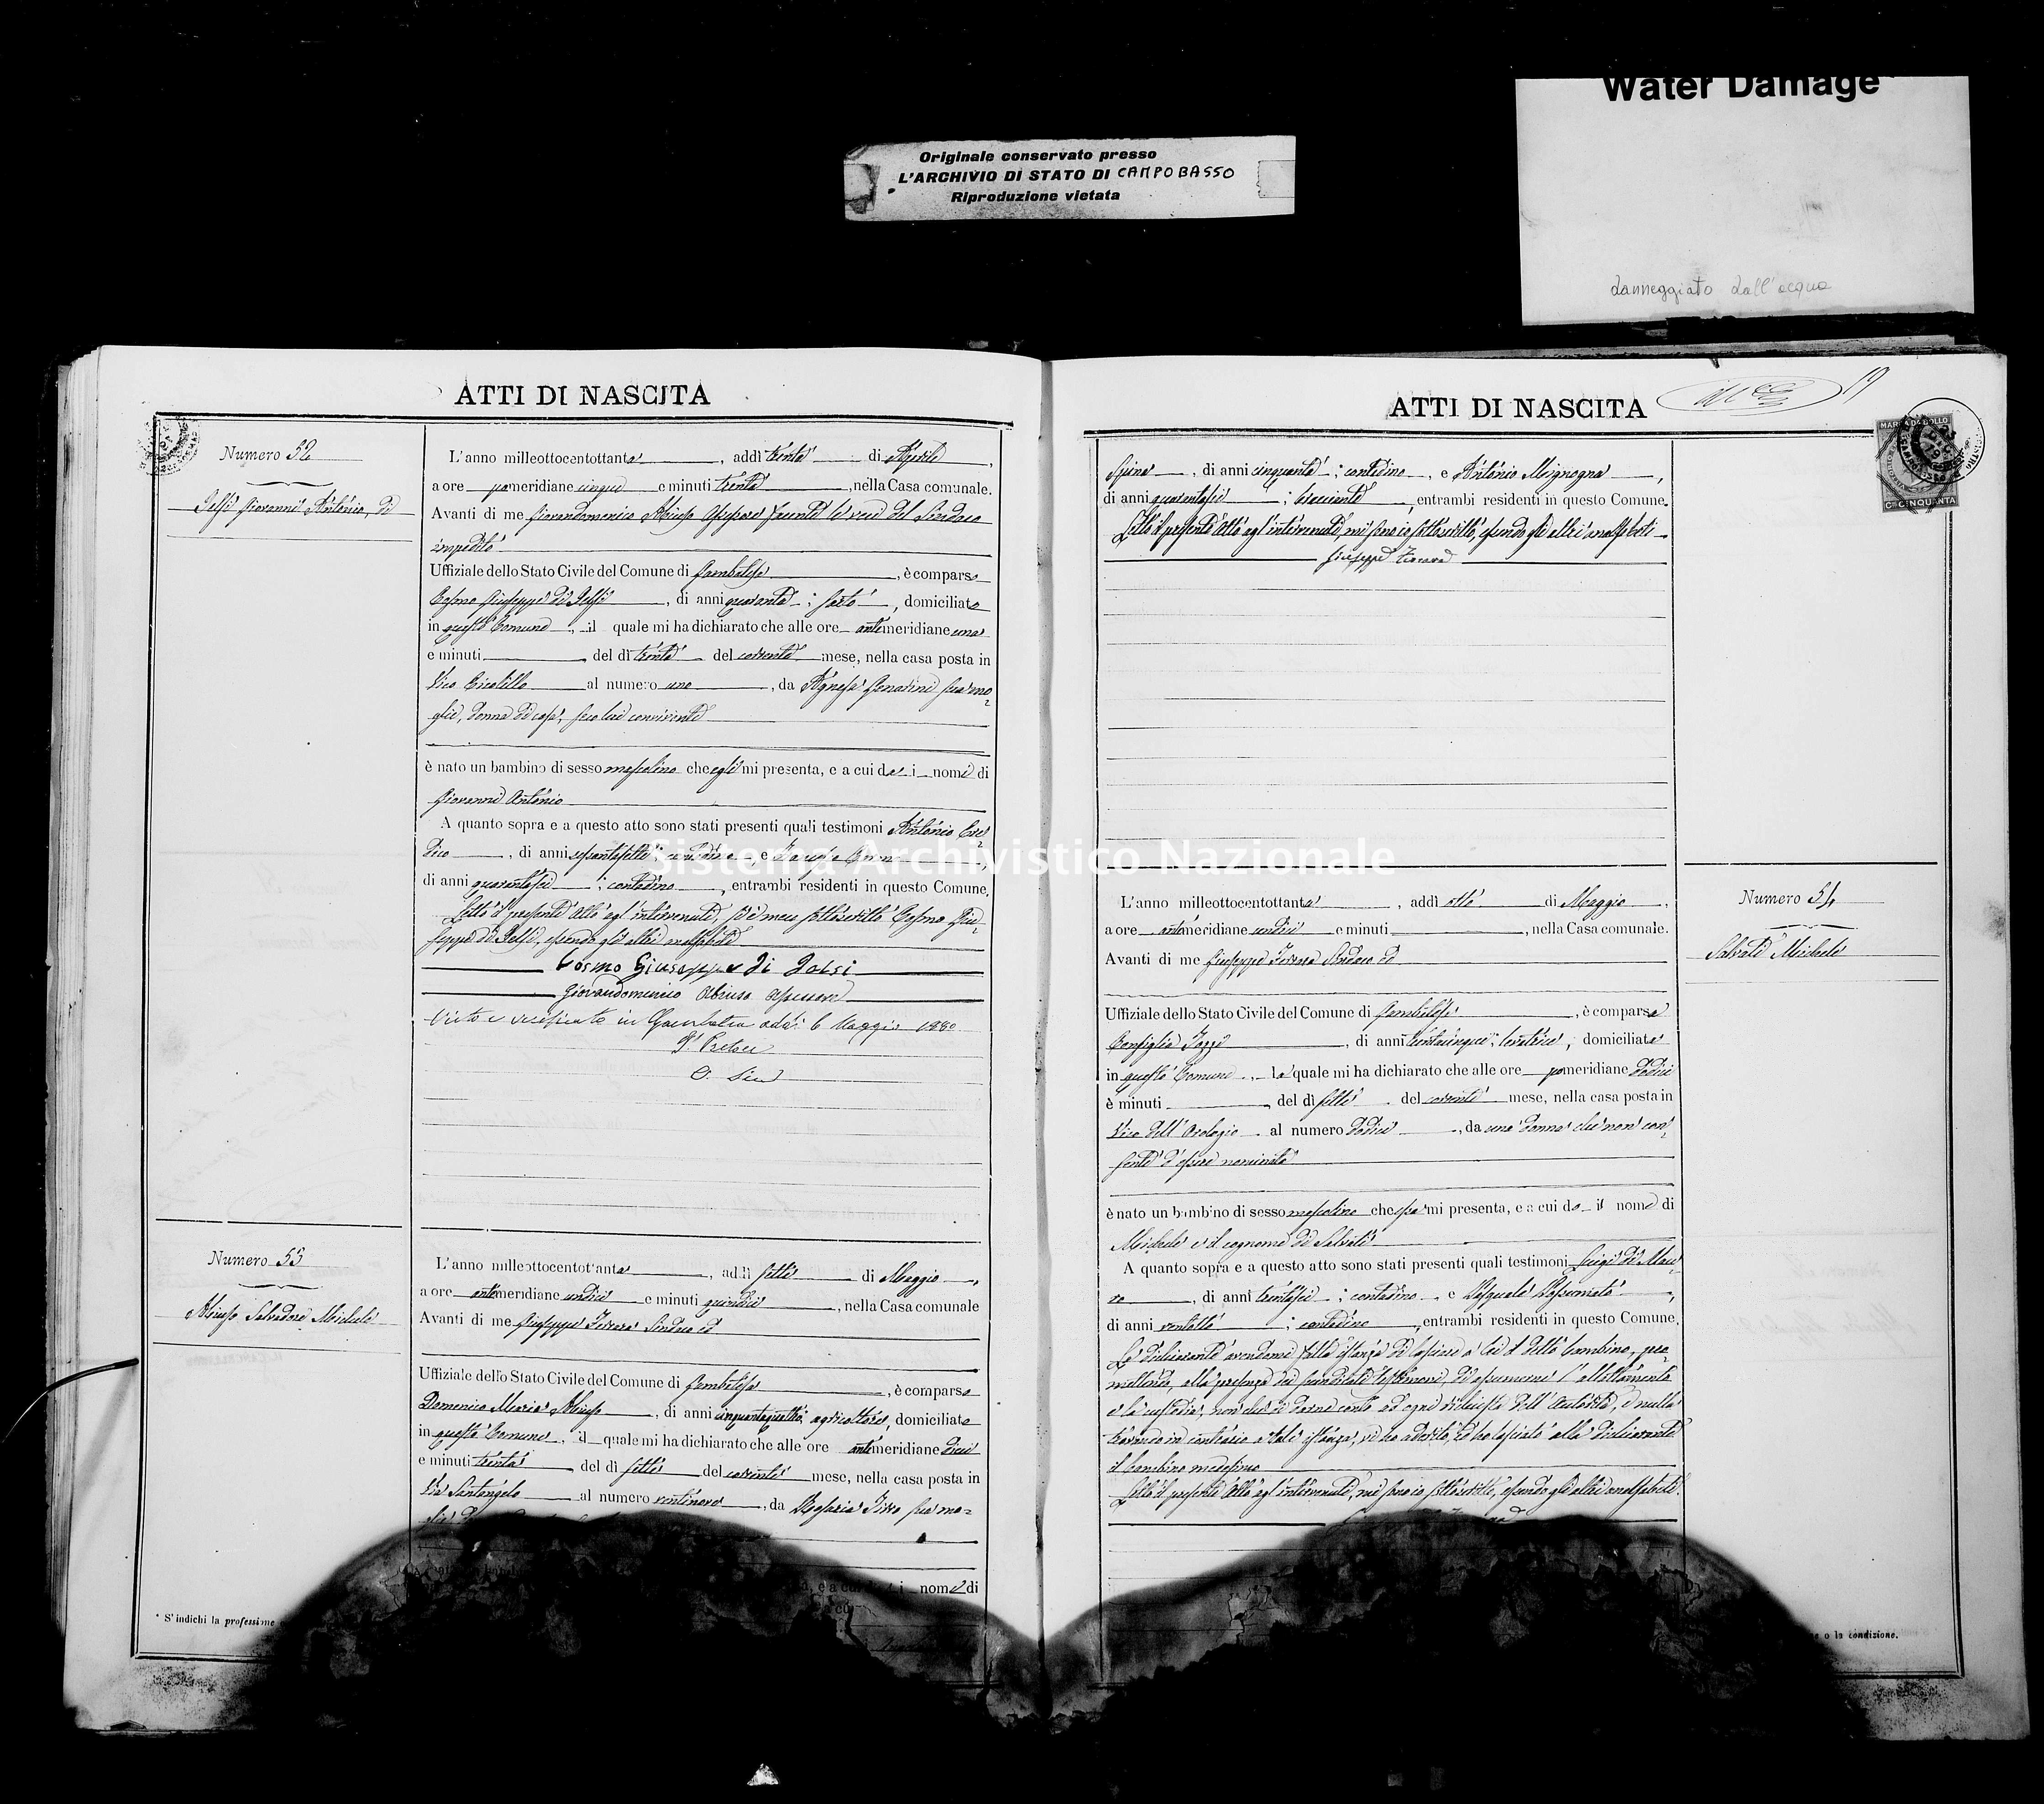 Water Damage
danneggiato dall'acqua
Originale conservato presso
L'ARCHIVIO DI STATO DI CAMPOBASSO
Riproduzione vietata
ATTI DI NASCITA
Numero 52
Jelsi Giovanni Antonio, di
L'anno milleottocentottanta, addì trenta di Aprile,
a ore pomeridiane cinque e minuti trenta, nella Casa comunale.
Avanti di me Giovandomenico Abiuso Assessore facente le veci del Sindaco
impedito
Uffiziale dello Stato Civile del Comune di Gambatesa, è comparso
Cosmo Giuseppe di Jelsi, di anni quaranta; sarto, domiciliato
in questo Comune, il quale mi ha dichiarato che alle ore antimeridiane una
e minuti del dì trenta del corrente mese, nella casa posta in
Vico al numero uno, da Agnesa Genovini sua mo=
glie, donna di casa, seco lui convivente
è nato un bambino di sesso mascolino che egli mi presenta, e a cui da i nomi di
Giovanni Antonio
A quanto sopra e a questo atto sono stati presenti quali testimoni Antonio
di anni sessantasette; contadino, e
di anni quarantasei; contadino, entrambi residenti in questo Comune.
Letto il presente atto agl'intervenuti, si è meco sottoscritto Cosmo Giu=
seppe di Jelsi, essendo gli altri analfabeti
Cosmo Giuseppe di Jelsi
Giovandomenico Abiuso Assessore
Visto e verificato in Gambatesa addì 6 Maggio 1880
Il Pretore
Numero 53
Abiuso Salvadore Michele
L'anno milleottocentottanta, addì sette di Maggio,
a ore antimeridiane undici e minuti quindici, nella Casa comunale
Avanti di me Giuseppe Ferrara Sindaco ed
Uffiziale dello Stato Civile del Comune di Gambatesa, è comparso
Domenico Maria Abiuso, di anni cinquantaquattro; agricoltore, domiciliato
in questo Comune, il quale mi ha dichiarato che alle ore antimeridiane dieci
e minuti trenta del dì sette del corrente mese, nella casa posta in
Via Santangelo al numero ventinove, da Rosaria sua mo=
, e a cui da i nomi di
* S'indichi la professione
ATTI DI NASCITA
MARCA DA BOLLO
CT CINQUANTA
Spina, di anni cinquanta; contadino, e Antonio Mignogna,
di anni quarantasei; bracciante, entrambi residenti in questo Comune.
Letto il presente atto agl'intervenuti, mi sono io sottoscritto, essendo gli altri analfabeti
Giuseppe Ferrara
Numero 54
Salvati Michele
L'anno milleottocentottanta, addì otto di Maggio,
a ore antimeridiane undici e minuti, nella Casa comunale.
Avanti di me Giuseppe Ferrara Sindaco ed
Uffiziale dello Stato Civile del Comune di Gambatesa, è comparsa
Consiglia Iozzi, di anni trentacinque; levatrice, domiciliata
in questo Comune, la quale mi ha dichiarato che alle ore pomeridiane dodici
e minuti del dì sette del corrente mese, nella casa posta in
Vico dell'Orologio al numero dodici, da una donna che non con=
sente d'essere nominata
è nato un bambino di sesso mascolino che essa mi presenta, e a cui do il nome di
Michele e il cognome di Salvati
A quanto sopra e a questo atto sono stati presenti quali testimoni Luigi di Mau=
ro, di anni trentasei; contadino, e Pasquale Passumato,
di anni ventotto; contadino, entrambi residenti in questo Comune.
La dichiarante avendomi fatta istanza di lasciare a lei il detto bambino, pro=
mettendo, alla presenza dei suindicati testimoni, di assumerne l'allattamento
e la custodia, non che di darne conto ad ogni richiesta dell'autorità, e nulla
trovando in contrario a tale istanza, vi ho aderito, ed ho lasciato alla dichiarante
il bambino medesimo
Letto il presente atto agl'intervenuti, mi sono io sottoscritto, essendo gli altri analfabeti.
e o la condizione.
Sistema Archivistico Nazionale